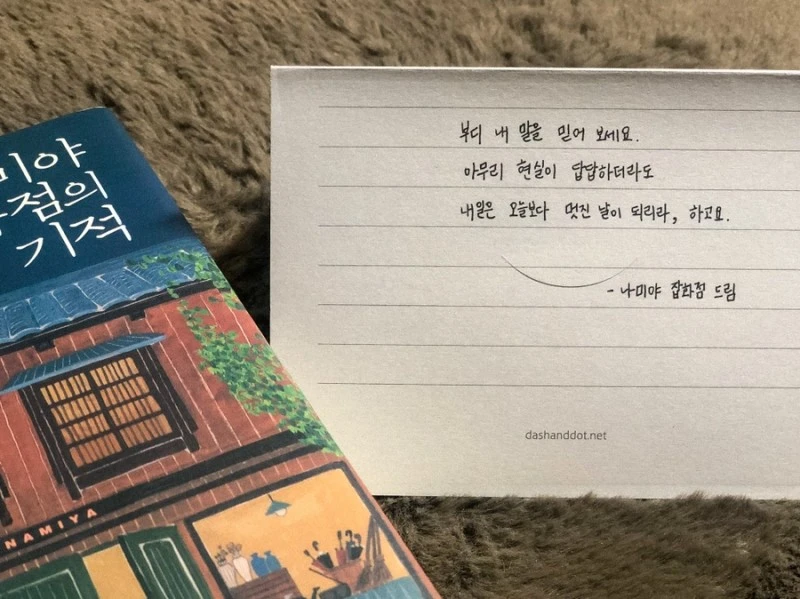 미야
점의
기적
NAMIYA
부디 내 말을 믿어 보세요.
아무리 현실이 답답하더라도
내일은 오늘보다 멋진 날이 되리라, 하고요.
- 나미야 잡화점 드림
dashanddot.net